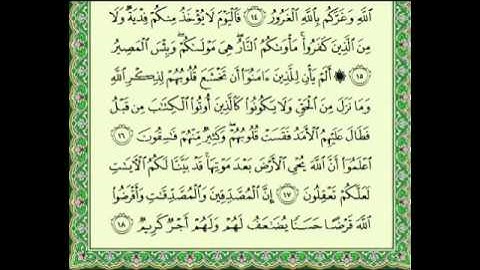 ٱللَّهِ وَغَرَّكُم بِٱللَّهِ ٱلْغَرُورُ ١٤ فَٱلْيَوْمَ لَا يُؤْخَذُ مِنكُمْ فِدْيَةٌ وَلَا
مِنَ ٱلَّذِينَ كَفَرُوا۟ ۚ مَأْوَىٰكُمُ ٱلنَّارُ ۖ هِىَ مَوْلَىٰكُمْ ۖ وَبِئْسَ ٱلْمَصِيرُ
١٥ ۞ أَلَمْ يَأْنِ لِلَّذِينَ ءَامَنُوٓا۟ أَن تَخْشَعَ قُلُوبُهُمْ لِذِكْرِ ٱللَّهِ
وَمَا نَزَلَ مِنَ ٱلْحَقِّ وَلَا يَكُونُوا۟ كَٱلَّذِينَ أُوتُوا۟ ٱلْكِتَٰبَ مِن قَبْلُ
فَطَالَ عَلَيْهِمُ ٱلْأَمَدُ فَقَسَتْ قُلُوبُهُمْ ۖ وَكَثِيرٌ مِّنْهُمْ فَٰسِقُونَ ١٦
ٱعْلَمُوٓا۟ أَنَّ ٱللَّهَ يُحْىِ ٱلْأَرْضَ بَعْدَ مَوْتِهَا ۚ قَدْ بَيَّنَّا لَكُمُ ٱلْءَايَٰتِ
لَعَلَّكُمْ تَعْقِلُونَ ١٧ إِنَّ ٱلْمُصَّدِّقِينَ وَٱلْمُصَّدِّقَٰتِ وَأَقْرَضُوا۟
ٱللَّهَ قَرْضًا حَسَنًا يُضَٰعَفُ لَهُمْ وَلَهُمْ أَجْرٌ كَرِيمٌ ١٨